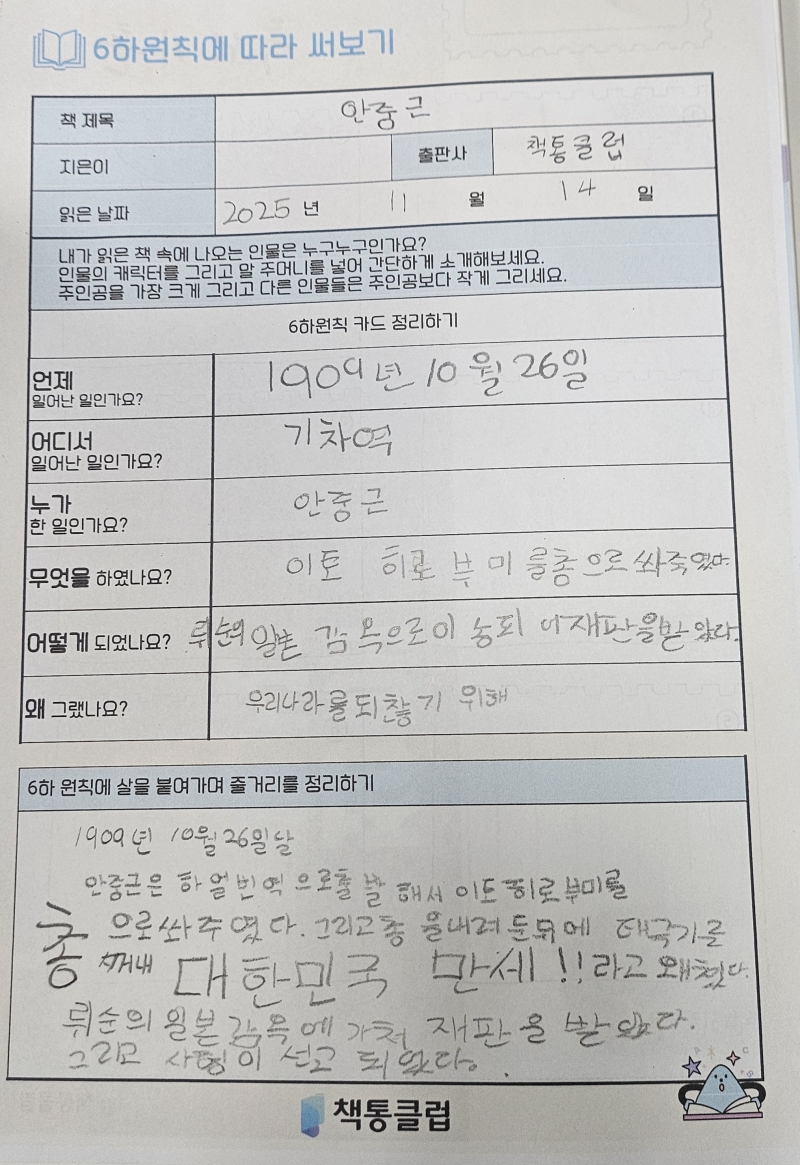 6하원칙에 따라 써보기
책 제목 안중근
지은이 출판사 책통클럽
읽은 날짜 2025 년 11 월 14 일
내가 읽은 책 속에 나오는 인물은 누구누구인가요?
인물의 캐릭터를 그리고 말 주머니를 넣어 간단하게 소개해보세요.
주인공을 가장 크게 그리고 다른 인물들은 주인공보다 작게 그리세요.
6하원칙 카드 정리하기
언제 1909년 10월 26일
일어난 일인가요?
어디서 기차역
일어난 일인가요?
누가 안중근
한 일인가요?
무엇을 하였나요? 이토 히로부미를총으로 쏴죽였다.
어떻게 되었나요? 뤼순의 일본 감옥으로이송되어재판을받았다.
왜 그랬나요? 우리나라를되찾기 위해
6하 원칙에 살을 붙여가며 줄거리를 정리하기
1909년 10월 26일날
안중근은 하얼빈역으로출발해서 이토히로부미를
총으로쏴주였다. 그리고총을내려둔뒤에 태극기를
꺼내 대한민국 만세!!라고 왜쳤다.
뤼순의 일본감옥에가처 재판을 받았다.
그리고 사형이 선고 되었다.
책통클럽